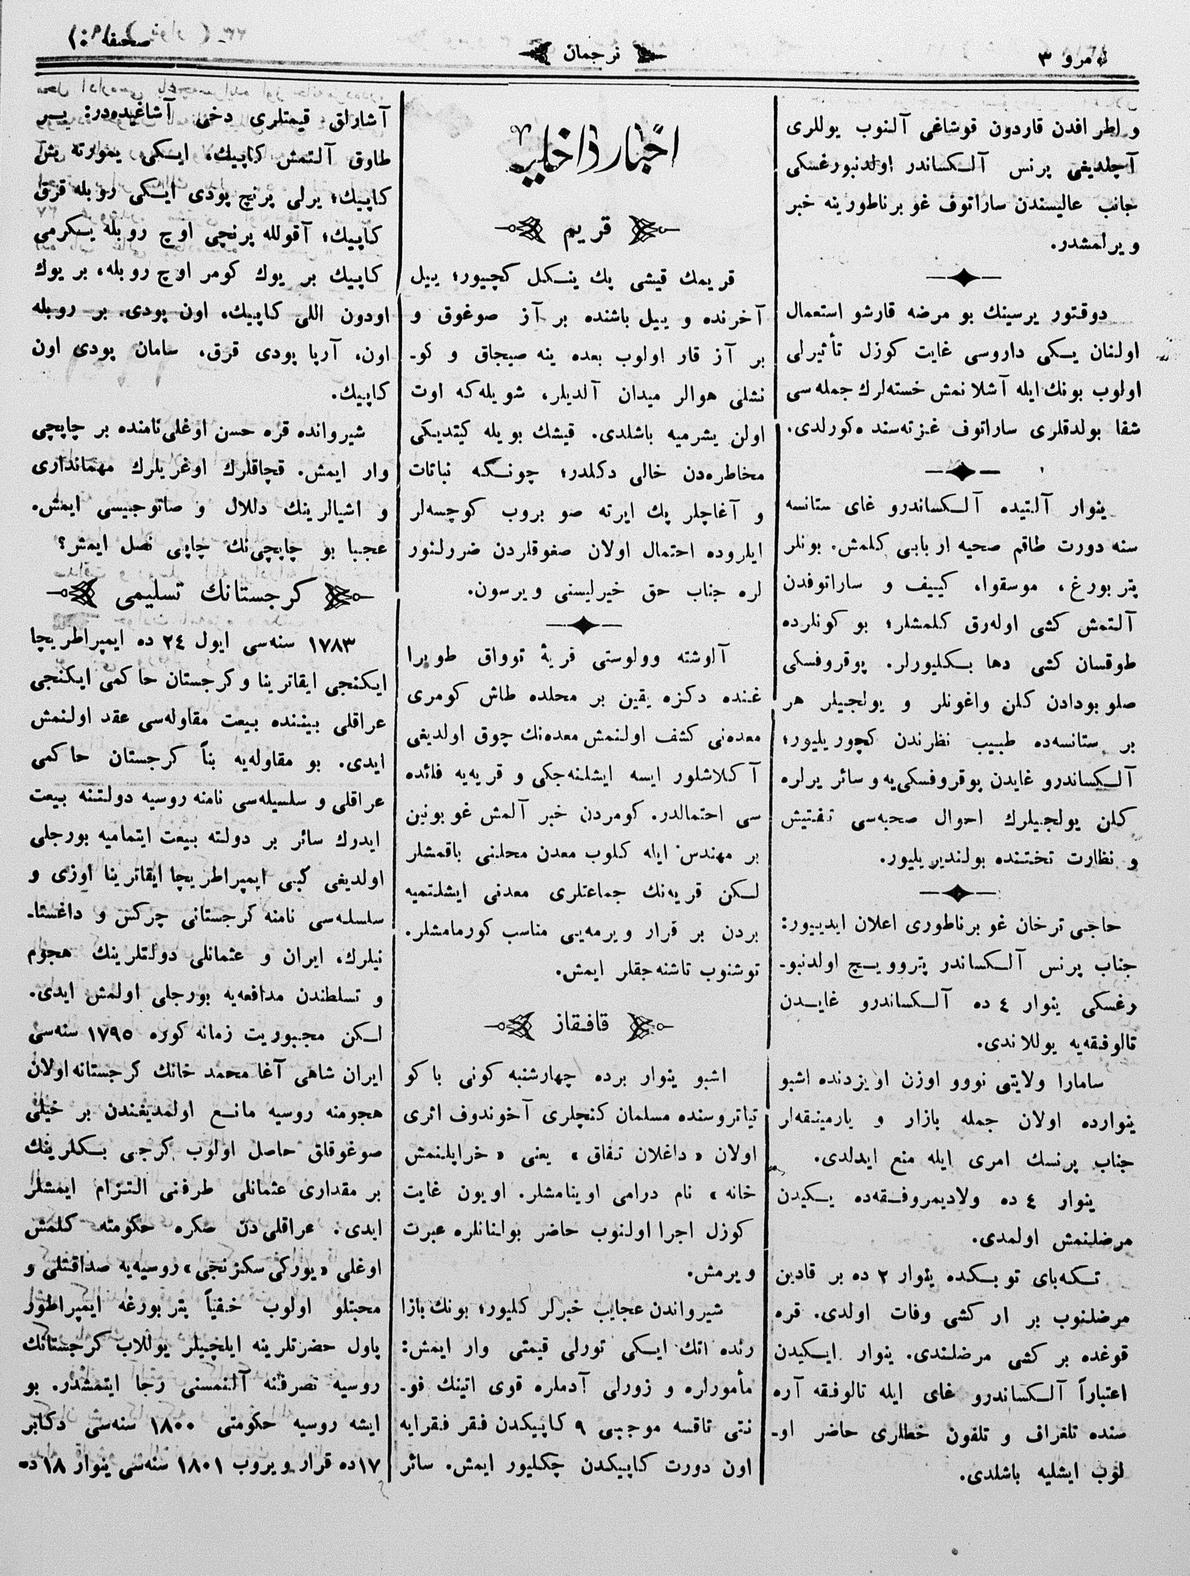 نومرو ٣
ترجمان
صحيفه ١٠
و اطرافدن قاردون قوشاغى آلنوب يوللرى
آچلديغى پرنس آلكساندر اولدنبورغسكى
جانب عاليسندن ساراتوف غوبرناطورينه خبر
ويرلمشدر.
دوقتور يرسينك بو مرضه قارشو استعمال
اولنان يكى داروسى غايت كوزل تأثيرلى
اولوب بونك ايله آشلانمش خسته‌لرك جمله‌سى
شفا بولدقلرى ساراتوف غزته‌سنده كورلدى.
ينوار آلتيده آلكساندرو غاى ستانسه
سنه دورت طاقم صحيه اربابى كلمش. بونلر
پتربورغ، موسقوا، كييف و ساراتوفدن
آلتمش كشى اوله‌رق كلمشلر؛ بو كونلرده
طوقسان كشى دها بكليورلر. پوقروفسكى
صلوبودادن كلن واغونلر و يولجيلر هر
بر ستانسه‌ده طبيب نظرندن كچوريليور؛
آلكساندرو غايدن پوقروفسكى‌يه و سائر يرلره
كلن يولجيلرك احوال صحيه‌سى تفتيش
و نظارت تختنده بولنديريليور.
حاجى ترخان غوبرناطورى اعلان ايدييور:
جناب پرنس آلكساندر پتروويچ اولدنبو-
رغسكى ينوار ٤ ده آلكساندرو غايدن
تالوفقه‌يه يوللاندى.
سامارا ولايتى نووو اوزن اويزدنده اشبو
ينوارده اولان جمله بازار و يارمينقه‌لر
جناب پرنسك امرى ايله منع ايدلدى.
ينوار ٤ ده ولاديميروفقه‌ده يكيدن
مرضلنمش اولمدى.
تكه‌باى توبكده ينوار ٢ ده بر قادين
مرضلنوب بر ار كشى وفات اولدى. قره
قوغده بر كشى مرضلندى. ينوار ايكيدن
اعتباراً آلكساندرو غاى ايله تالوفقه آره
سنده تلغراف و تلفون خطلرى حاضر او-
لوب ايشليه باشلدى.
اخبار داخليه
قريم
قريمك قيشى پك ينكل كچيور؛ ييل
آخرنده و ييل باشنده بر آز صوغوق و
بر آز قار اولوب بعده ينه صيجاق و كو-
نشلى هوالر ميدان آلديلر، شويله‌كه اوت
اولن يشرميه باشلدى. قيشك بويله كيتديكى
مخاطره‌دن خالى دكلدر؛ چونكه نباتات
و آغاچلر پك ايرته صو يروب كوچسه‌لر
ايلروده احتمال اولان صغوقلردن ضررلنور
لره جناب حق خيرليسنى ويرسون.
آلوشته وولوستى قريۀ توواق طوپرا
غنده دكزه يقين بر محلده طاش كومرى
معدنى كشف اولنمش معدنك چوق اولديغى
آكلاشلور ايسه ايشلنه‌جكى و قريه‌يه فائده
سى احتمالدر. كومردن خبر آلمش غوبونين
بر مهندس ايله كلوب معدن محلنى باقمشلر
لكن قريه‌نك جماعتلرى معدنى ايشلتميه
بردن بر قرار ويرمه‌يى مناسب كورمامشلر.
توشنوب تاشنه‌جقلر ايمش.
قافقاز
اشبو ينوار برده چهارشنبه كونى باكو
تياتروسنده مسلمان كنجلرى آخوندوف اثرى
اولان «داغلان تفاق» يعنى «خرابلنمش
خانه» نام درامى اوينامشلر. اويون غايت
كوزل اجرا اولنوب حاضر بولنانلره عبرت
ويرمش.
شيرواندن عجايب خبرلر كليور؛ بونك بازا
رنده اتك ايكى تورلى قيمتى وار ايمش:
مأمورلره و زورلى آدملره قوى اتينك فو-
نتى تاقسه موجبى ٩ كاپيكدن فقر فقرايه
اون دورت كاپيكدن چكليور ايمش. سائر
آشارلق قيمتلرى دخى آشاغيده‌در: بر
طاوق آلتمش كاپيك، ايكى يمورته بش
كاپيك؛ يرلى پرنچ پودى ايكى روبله قرق
كاپيك؛ آقولله پرنچى اوچ روبله يكرمى
كاپيك بر يوك كومر اوچ روبله، بر يوك
اودون اللى كاپيك، اون پودى بر روبله
اون، آرپا پودى قرق، سامان پودى اون
كاپيك.
شيروانده قره حسن اوغلى نامنده بر چاپچى
وار ايمش. قچاقلرك اوغريلرك مهماندارى
و اشيالرينك دللال و صاتوجيسى ايمش.
عجبا بو چاپچى‌نك چاپى نصل ايمش؟
كرجستانك تسليمى
١٧٨٣ سنه‌سى ايول ٢٤ ده ايمپراطريچا
ايكنجى ايقاترينا و كرجستان حاكمى ايكنجى
عراقلى بيننده بيعت مقاوله‌سى عقد اولنمش
ايدى. بو مقاوله‌يه بناً كرجستان حاكمى
عراقلى و سلسيله‌سى نامنه روسيه دولتنه بيعت
ايدرك سائر بر دولته بيعت ايتماميه بورجلى
اولديغى كبى ايمپراطريچا ايقاترينا اوزى و
سلسله‌سى نامنه كرجستانى چركس و داغستا-
نيلرك، ايران و عثمانلى دولتلرينك هجوم
و تسلطندن مدافعه‌يه بورجلى اولمش ايدى.
لكن مجبوريت زمانه كوره ١٧٩٥ سنه‌سى
ايران شاهى آغا محمد خانك كرجستانه اولان
هجومنه روسيه مانع اولمديغندن بر خيلى
صوغوقلق حاصل اولوب كرجى بكلرينك
بر مقدارى عثمانلى طرفنى التزام ايمشلر
ايدى. عراقلى‌دن صكره حكومته كلمش
اوغلى «يوركى سكزنجى» روسيه‌يه صداقتلى و
محبتلو اولوب خفياً پتربورغه ايمپراطور
پاول حضرتلرينه ايلچيلر يوللاب كرجستانك
روسيه تصرفنه آلنمسنى رجا ايتمشدر. بو
ايشه روسيه حكومتى ١٨٠٠ سنه‌سى دكابر
١٧ده قرار ويروب ١٨٠١ سنه‌سى ينوار ١٨ ده